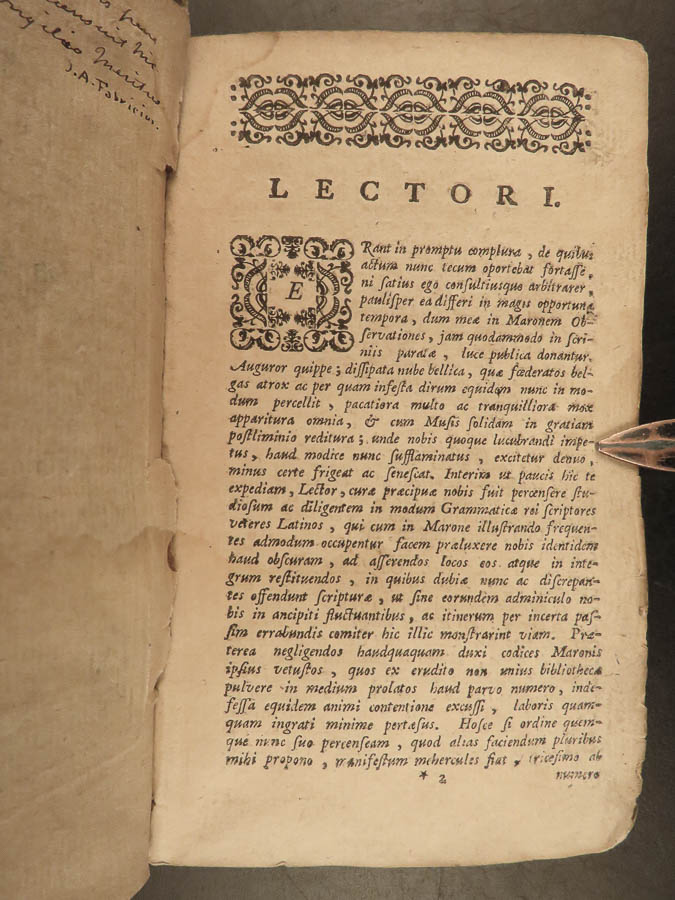 J. A. Fabricius.
LECTORI.
ERant in promptu complura, de quibus
actum nunc tecum oportebat fortasse,
ni satius ego consultiusque arbitrarer,
paulisper ea differri in magis opportuna
tempora, dum meæ in Maronem Ob-
servationes, jam quodammodo in scri-
niis paratæ, luce publica donantur.
Auguror quippe; dissipata nube bellica, quæ fœderatos bel-
gas atrox ac per quam infesta dirum equidem nunc in mo-
dum percellit, pacatiora multo ac tranquilliora mox
apparitura omnia, & cum Musis solidam in gratiam
postliminio reditura; unde nobis quoque lucubrandi impe-
tus, haud modice nunc sufflaminatus, excitetur denuo,
minus certe frigeat ac senescat. Interim ut paucis hic te
expediam, Lector, curæ præcipuæ nobis fuit percensere stu-
diosum ac diligentem in modum Grammaticæ rei scriptores
veteres Latinos, qui cum in Marone illustrando frequen-
tes admodum occupentur facem præluxere nobis identidem
haud obscuram, ad asserendos locos eos atque in inte-
grum restituendos, in quibus dubiæ nunc ac discrepan-
tes offendunt scripturæ, ut sine eorundem adminiculo no-
bis in ancipiti fluctuantibus, ac itinerum per incerta pas-
sim errabundis comiter hic illic monstrarint viam. Præ-
terea negligendos haudquaquam duxi codices Maronis
ipsius vetustos, quos ex erudito non unius bibliothecæ
pulvere in medium prolatos haud parvo numero, inde-
fessa equidem animi contentione excussi, laboris quam-
quam ingrati minime pertæsus. Hosce si ordine quem-
que nunc suo percenseam, quod alias faciendum pluribus
mihi propono, manifestum mehercules fiat, tricesimo ab
* 2 numero